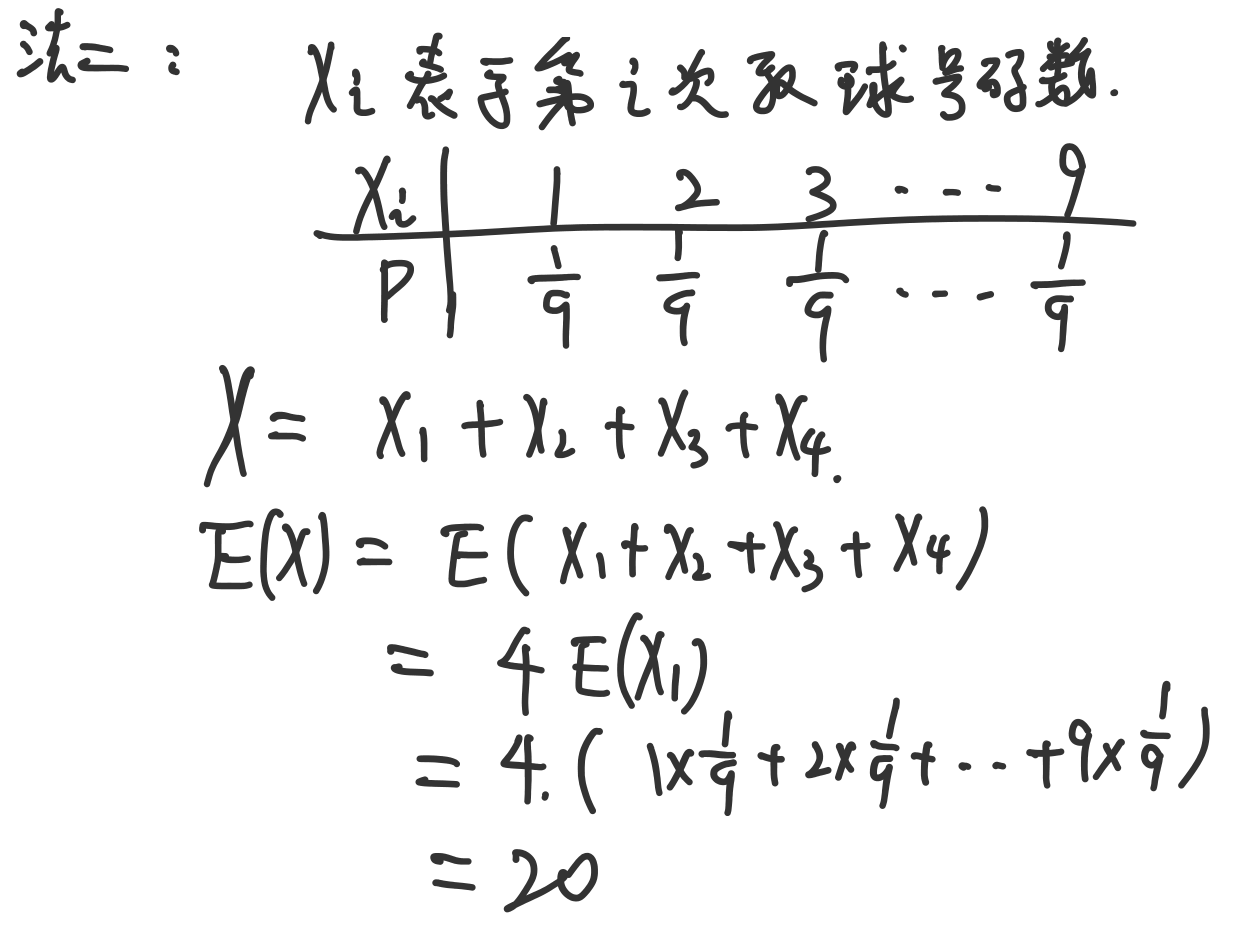 法二：
X_i 表示第 i 次取球号码数.
X_i | 1 2 3 ... 9
P | 1/9 1/9 1/9 ... 1/9
X = X_1 + X_2 + X_3 + X_4.
E(X) = E(X_1 + X_2 + X_3 + X_4)
= 4 E(X_1)
= 4.(1×1/9 + 2×1/9 + ... + 9×1/9)
= 20